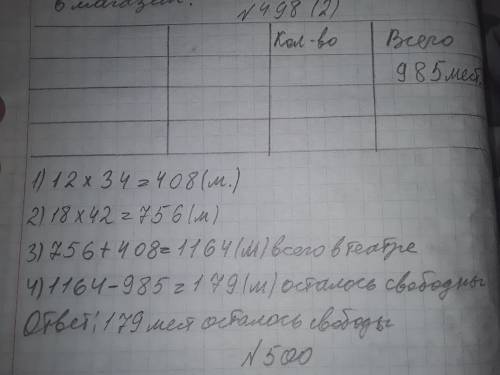 в магазин.
№498 (2)
Кол-во Всего
985 мест.
1) 12 х 34 = 408 (м.)
2) 18 х 42 = 756 (м)
3) 756 + 408 = 1164 (м) всего в театре
4) 1164 - 985 = 179 (м) осталось свободны
Ответ: 179 мест осталось свободы
№500